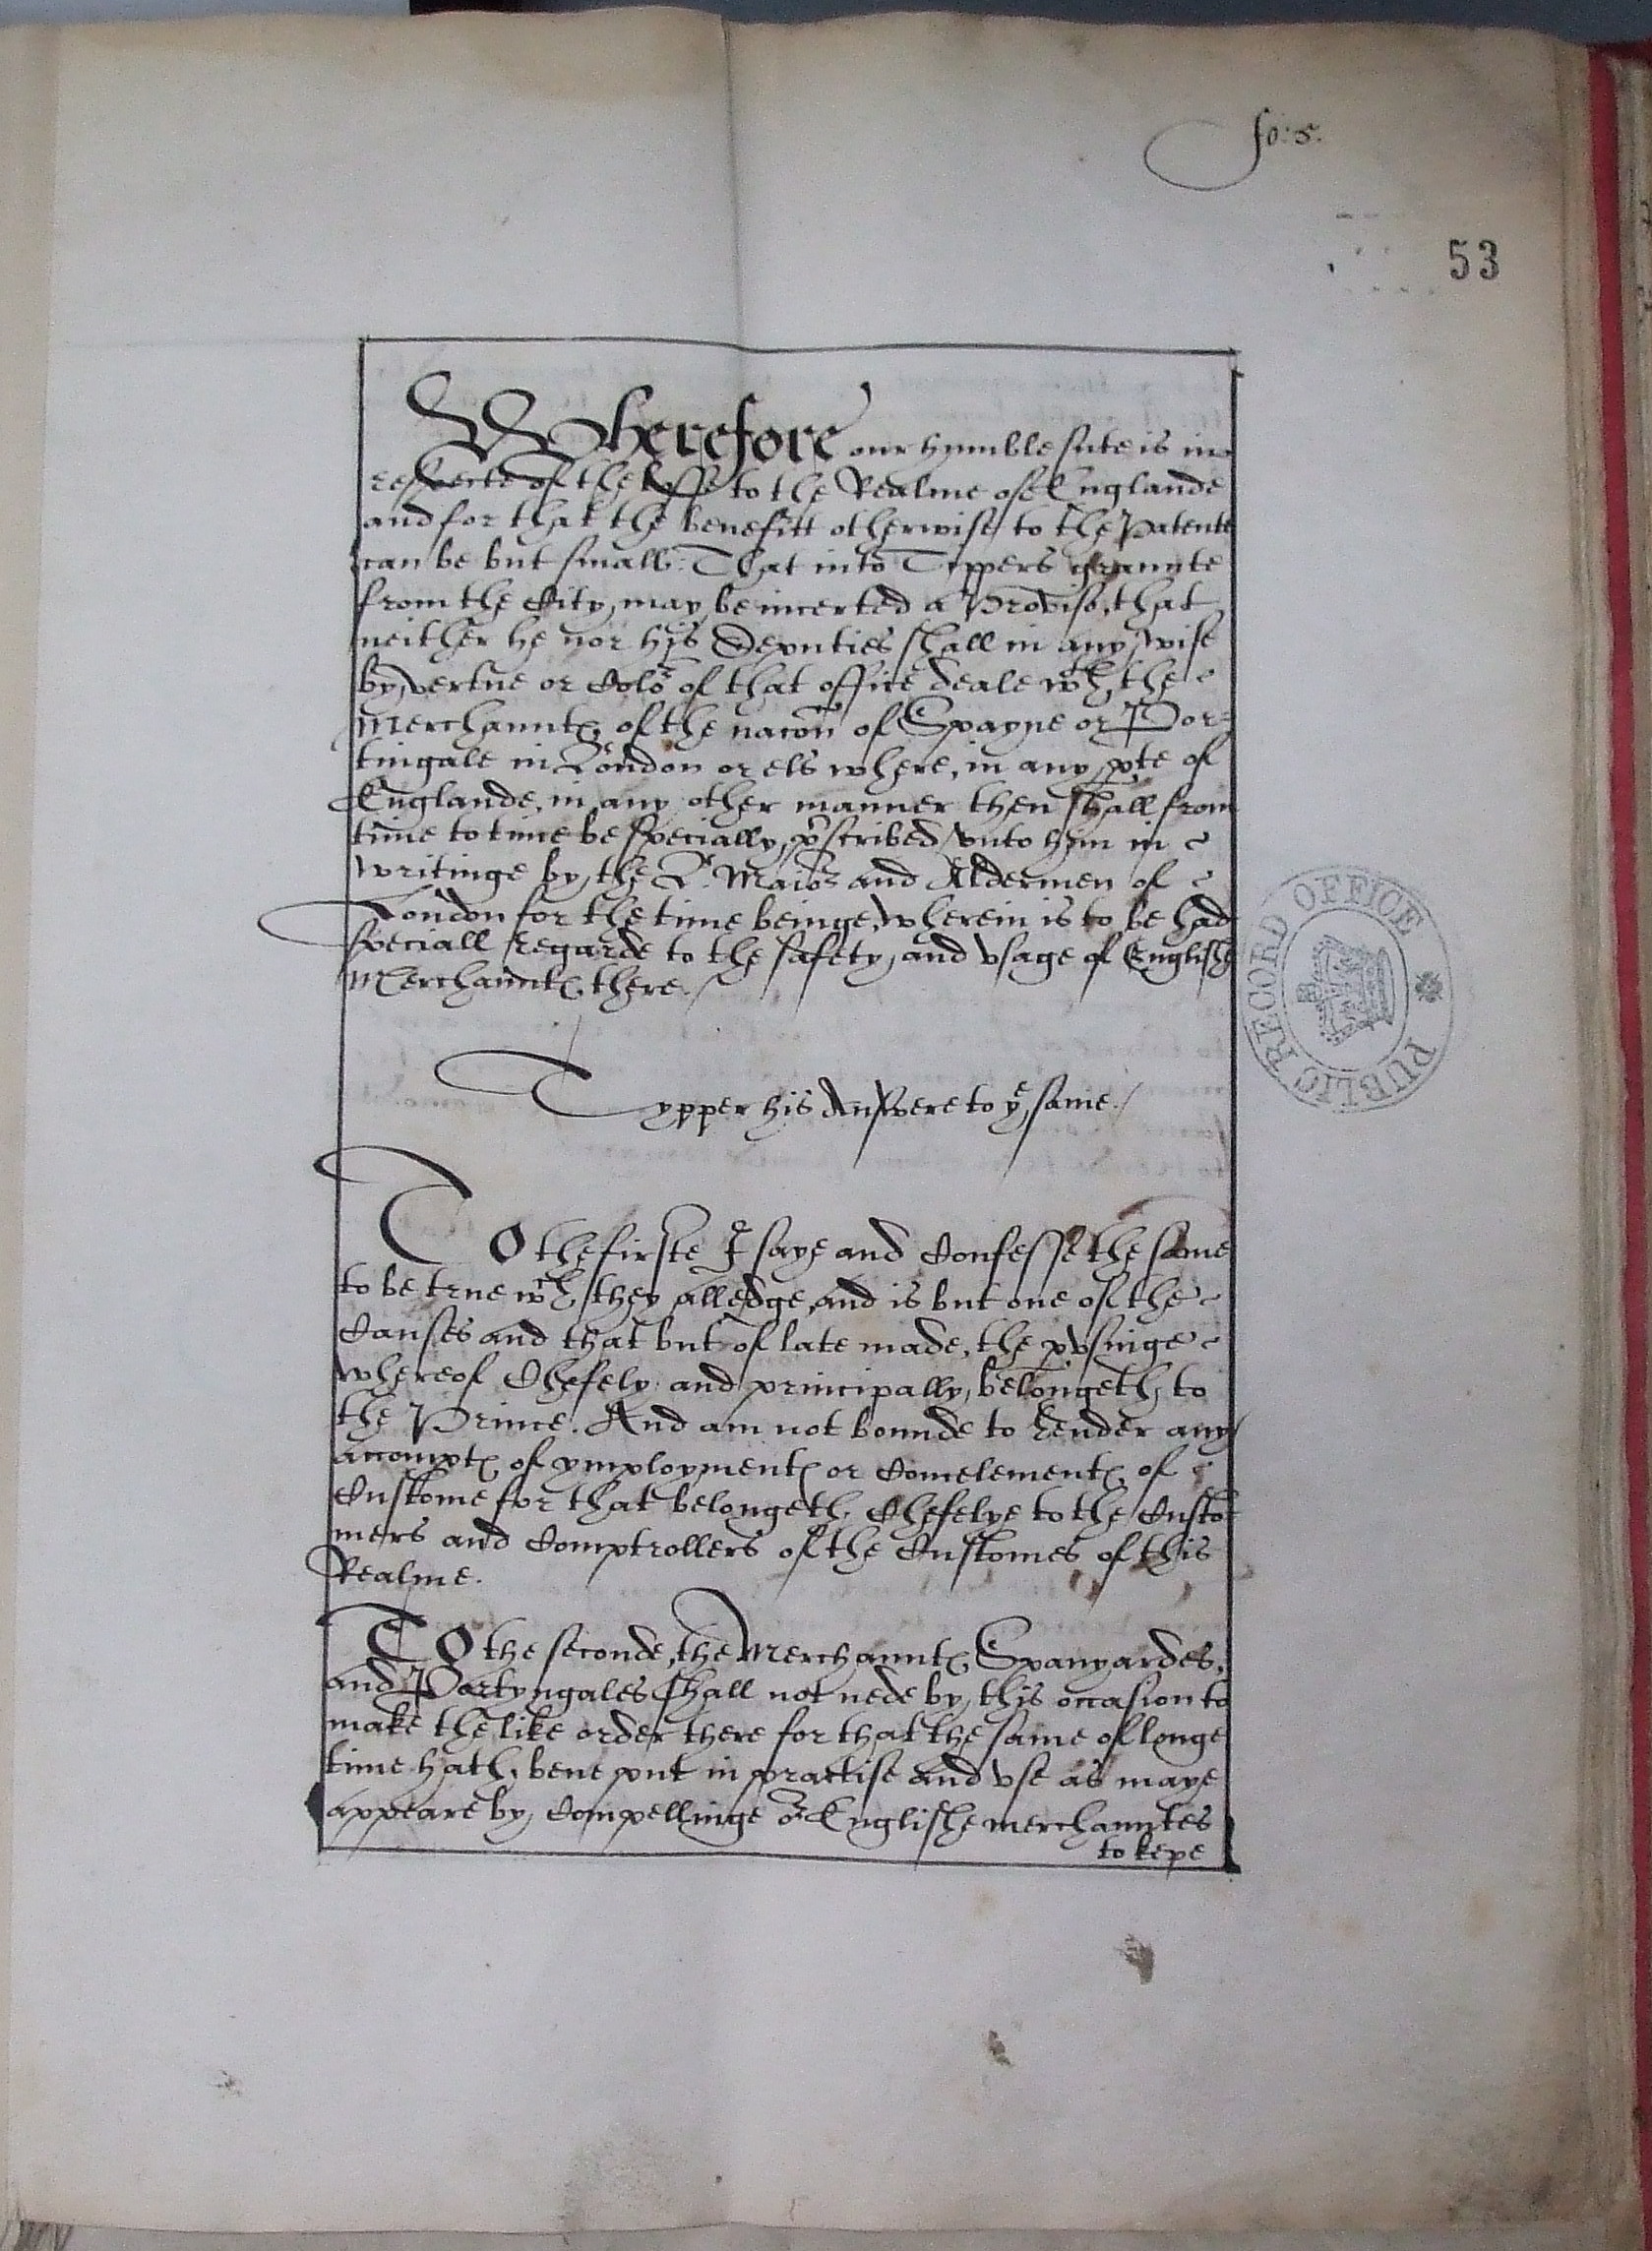 fo: 5.
53
Wherefore our humble sute is in
respecte of the losse to the Realme of Englande
and for that the benefitt otherwise to the Patente
can be but small: That into Tippers graunte
from the City, may be incerted a Proviso, that
neither he nor his Deputies shall in any wise
by vertue or Color of that office deale wth the
Merchauntes of the nacon of Spayne or Por=
tingale in London or els where, in any pte of
Englande, in any other manner then shall from
time to time be specially pscribed vnto him in
writinge by the L. Maior and Aldermen of
London for the time beinge, wherein is to be had
speciall regarde to the safety and vsage of Englishe
Merchauntes there./
Typper his Answere to ye same./
To the firste I saye and Confesse the same
to be true wch they alledge, and is but one of the
Causes and that but of late made, the pvsinge
whereof Chefely and principally belongeth to
the Prince. And am not bounde to render any
accomptes of ymploymentes or Concelementes of
Custome for that belongeth Chefelye to the Custo
mers and Comptrollers of the Customes of this
Realme.
To the seconde, the Merchauntes Spanyardes,
and Portyngales shall not nede by this occasion to
make the like order there for that the same of longe
time hath bene put in practise and vse as maye
appeare by Compellinge or Englishe merchauntes
to kepe
PUBLIC RECORD OFFICE